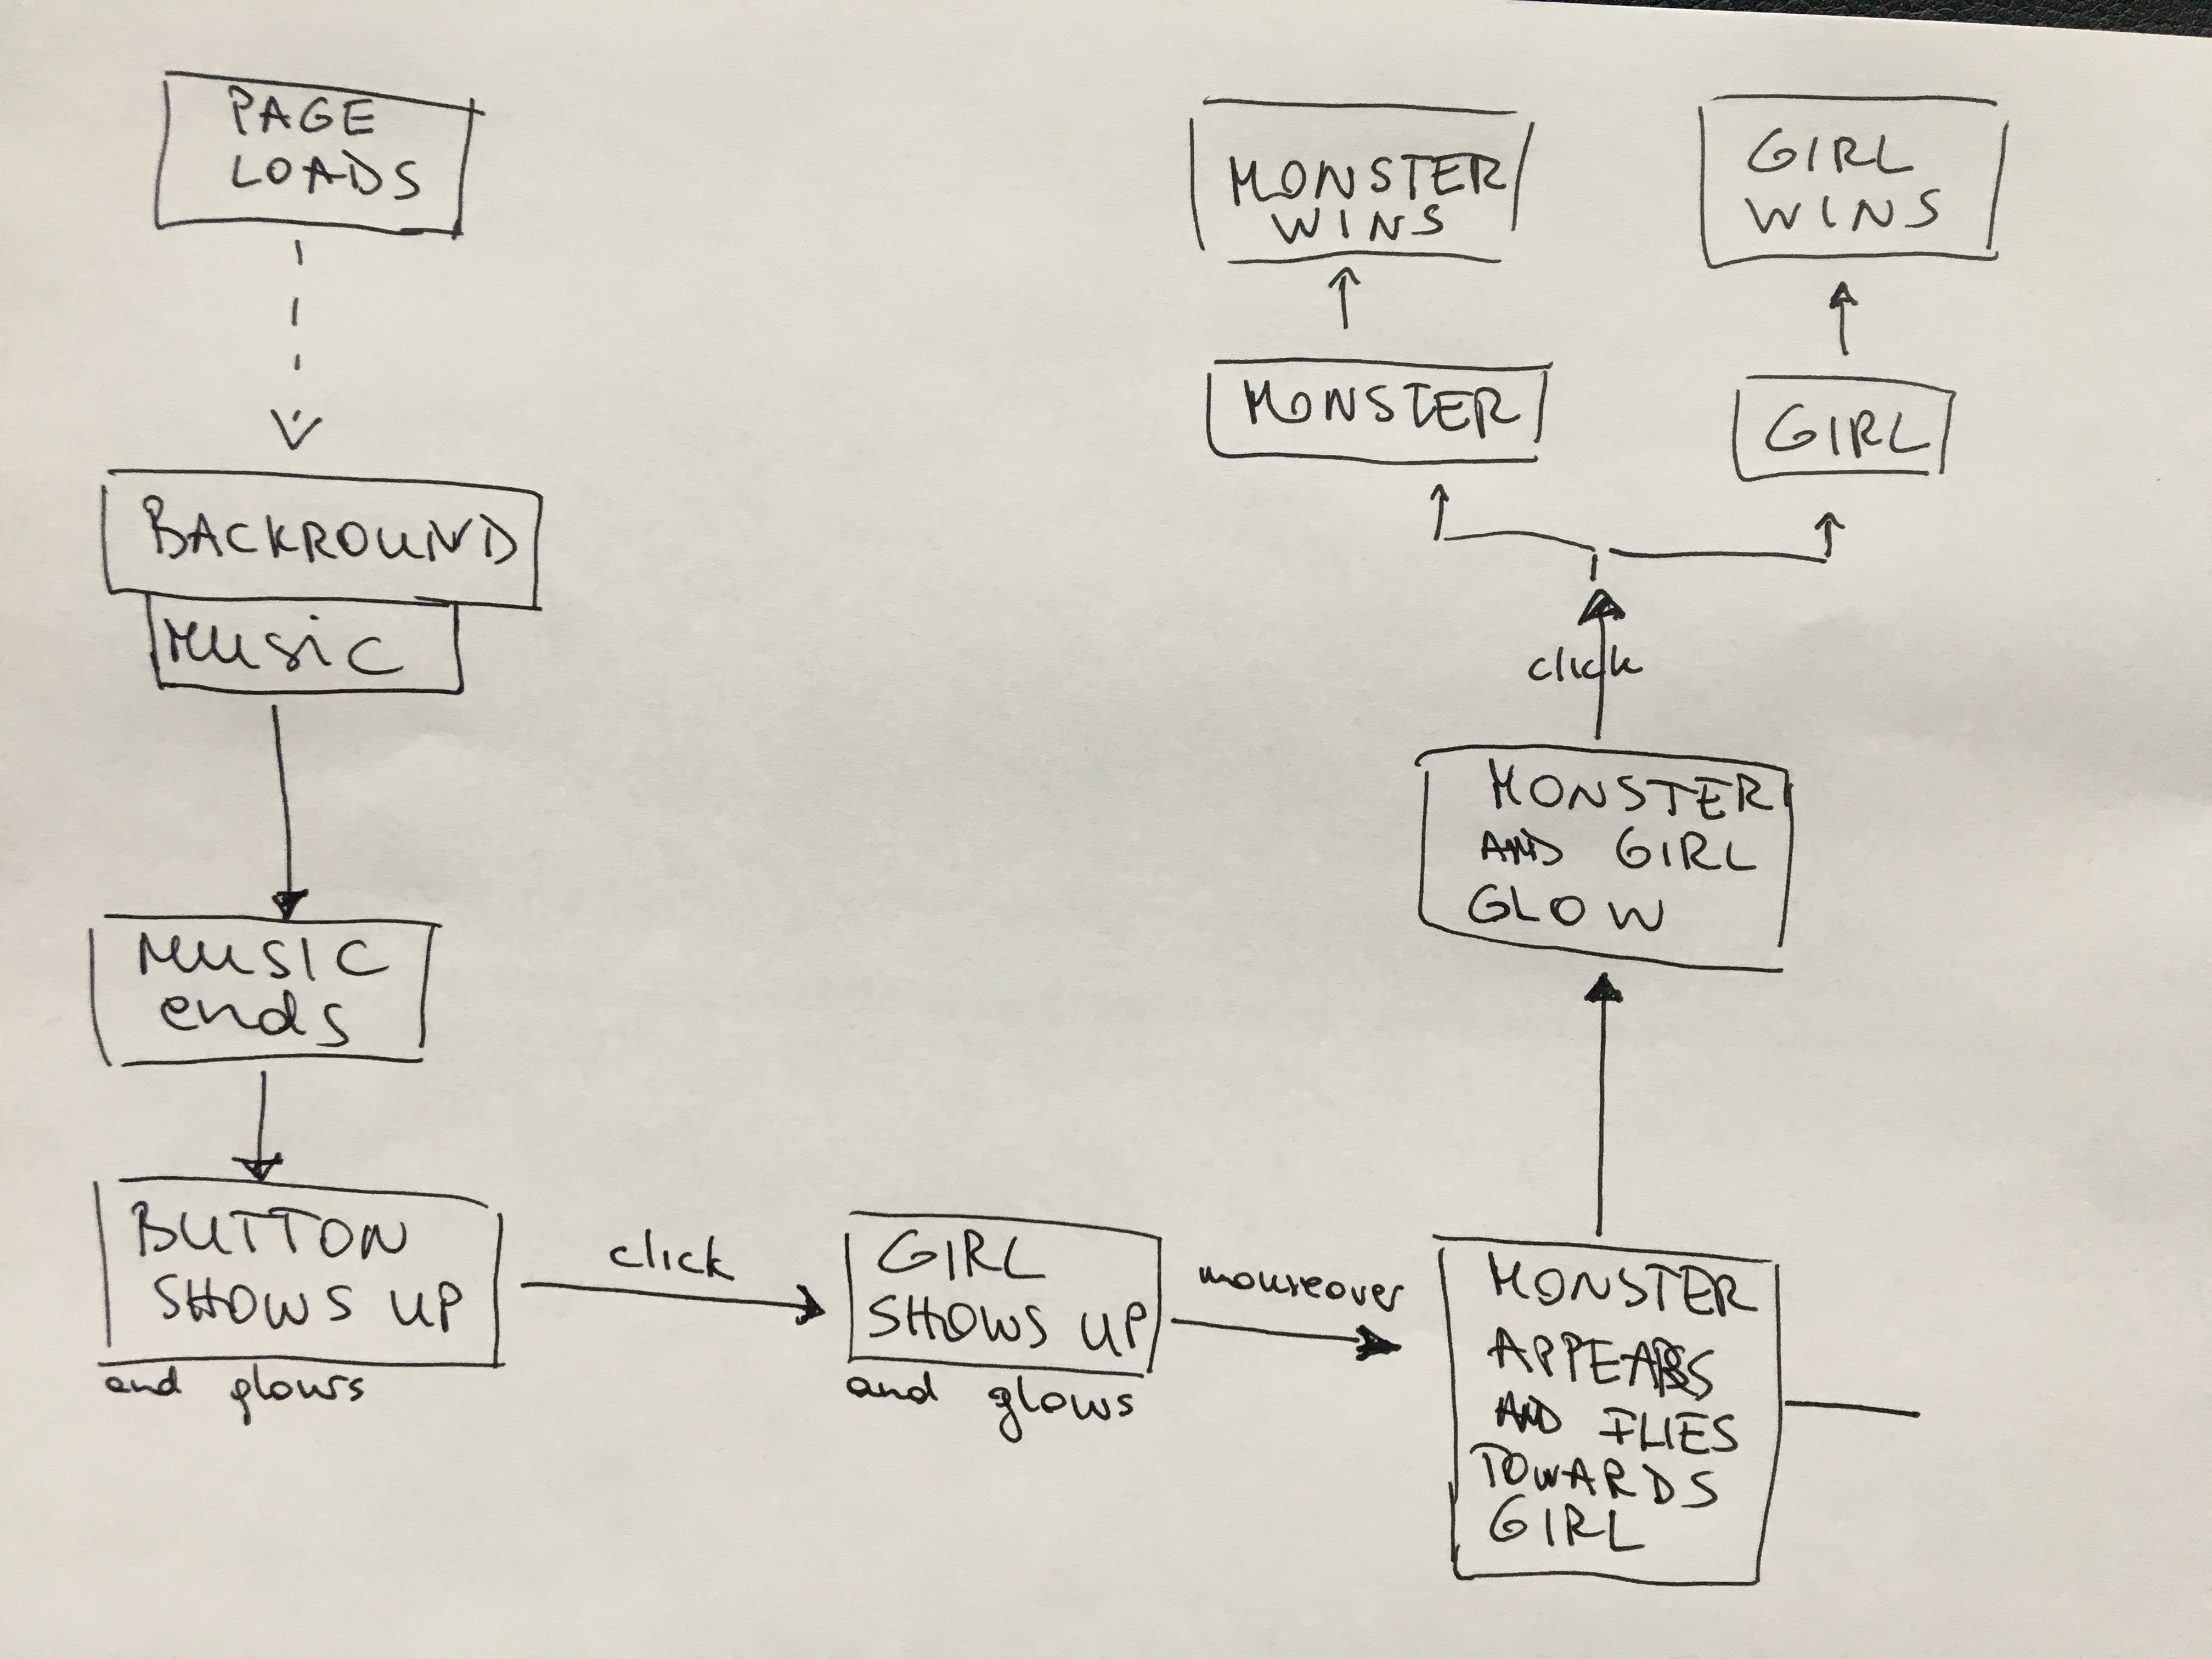 PAGE
LOADS
BACKROUND
MUSIC
MUSIC
ends
BUTTON
SHOWS UP
and glows
click
GIRL
SHOWS UP
and glows
mouseover
MONSTER
APPEARS
AND FLIES
TOWARDS
GIRL
MONSTER
AND GIRL
GLOW
click
MONSTER
MONSTER
WINS
GIRL
GIRL
WINS